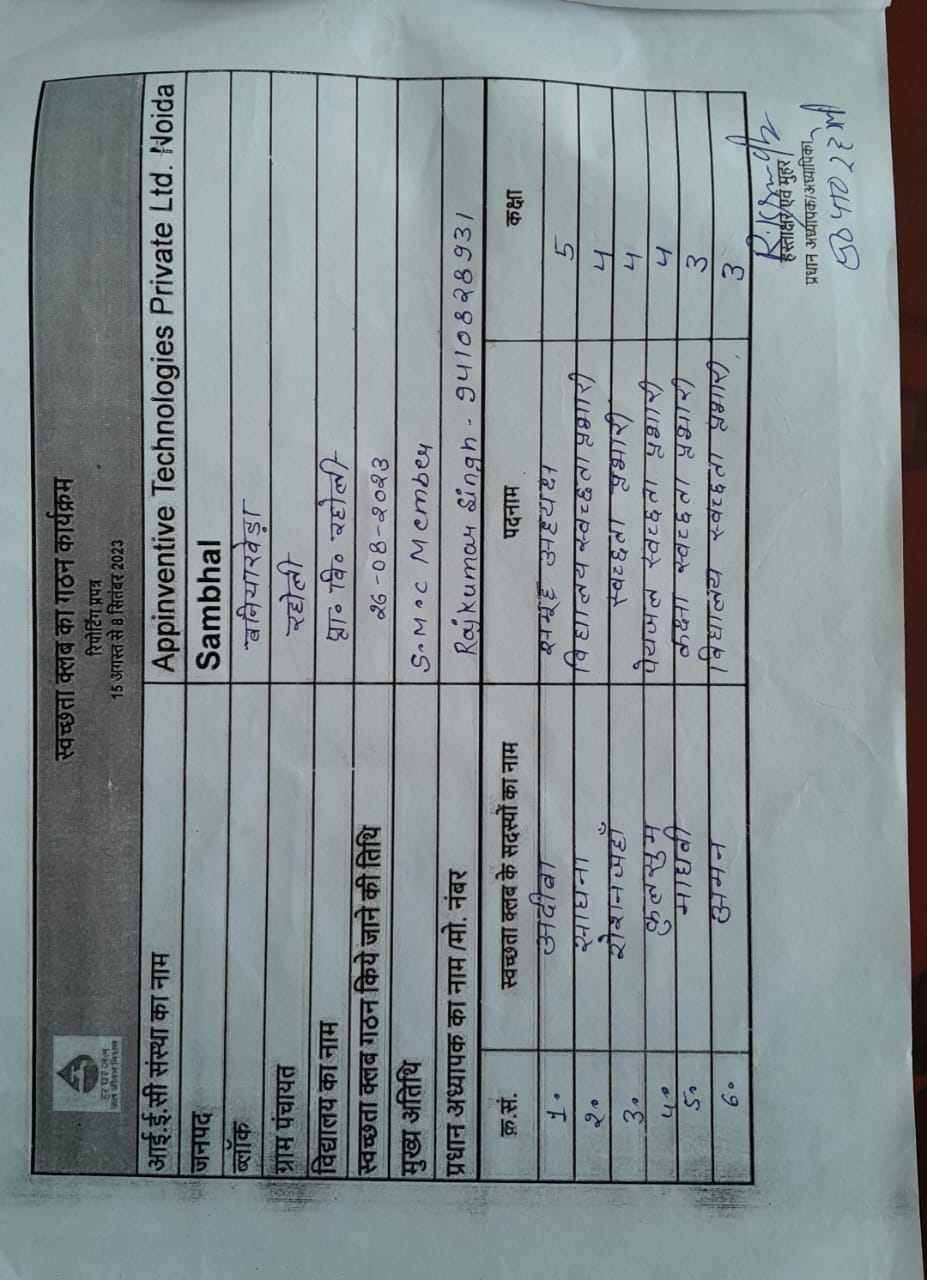 हर घर जल
जल जीवन मिशन
स्वच्छता क्लब का गठन कार्यक्रम
रिपोर्टिंग प्रपत्र
15 अगस्त से 8 सितंबर 2023
आई.ई.सी संस्था का नाम Appinventive Technologies Private Ltd. Noida
जनपद Sambhal
ब्लॉक बनियाखेड़ा
ग्राम पंचायत रहोली
विद्यालय का नाम प्रा० वि० रहोली
स्वच्छता क्लब गठन किये जाने की तिथि २६-०8-२०२३
मुख्य अतिथि S.M.C Member
प्रधान अध्यापक का नाम /मो. नंबर Rajkumar Singh - 9410828931
क्र.सं. स्वच्छता क्लब के सदस्यों का नाम पदनाम कक्षा
1. अदीबा समूह अध्यक्ष 5
२. साधना विद्यालय स्वच्छता प्रभारी 4
३. रोशनजहाँ स्वच्छता प्रभारी 4
४. कुलसुम पेयजल स्वच्छता प्रभारी 4
5. माधवी कक्षा स्वच्छता प्रभारी 3
6. अमन विद्यालय स्वच्छता प्रभारी 3
हस्ताक्षर एवं मुहर
प्रधान अध्यापक/अध्यापिका